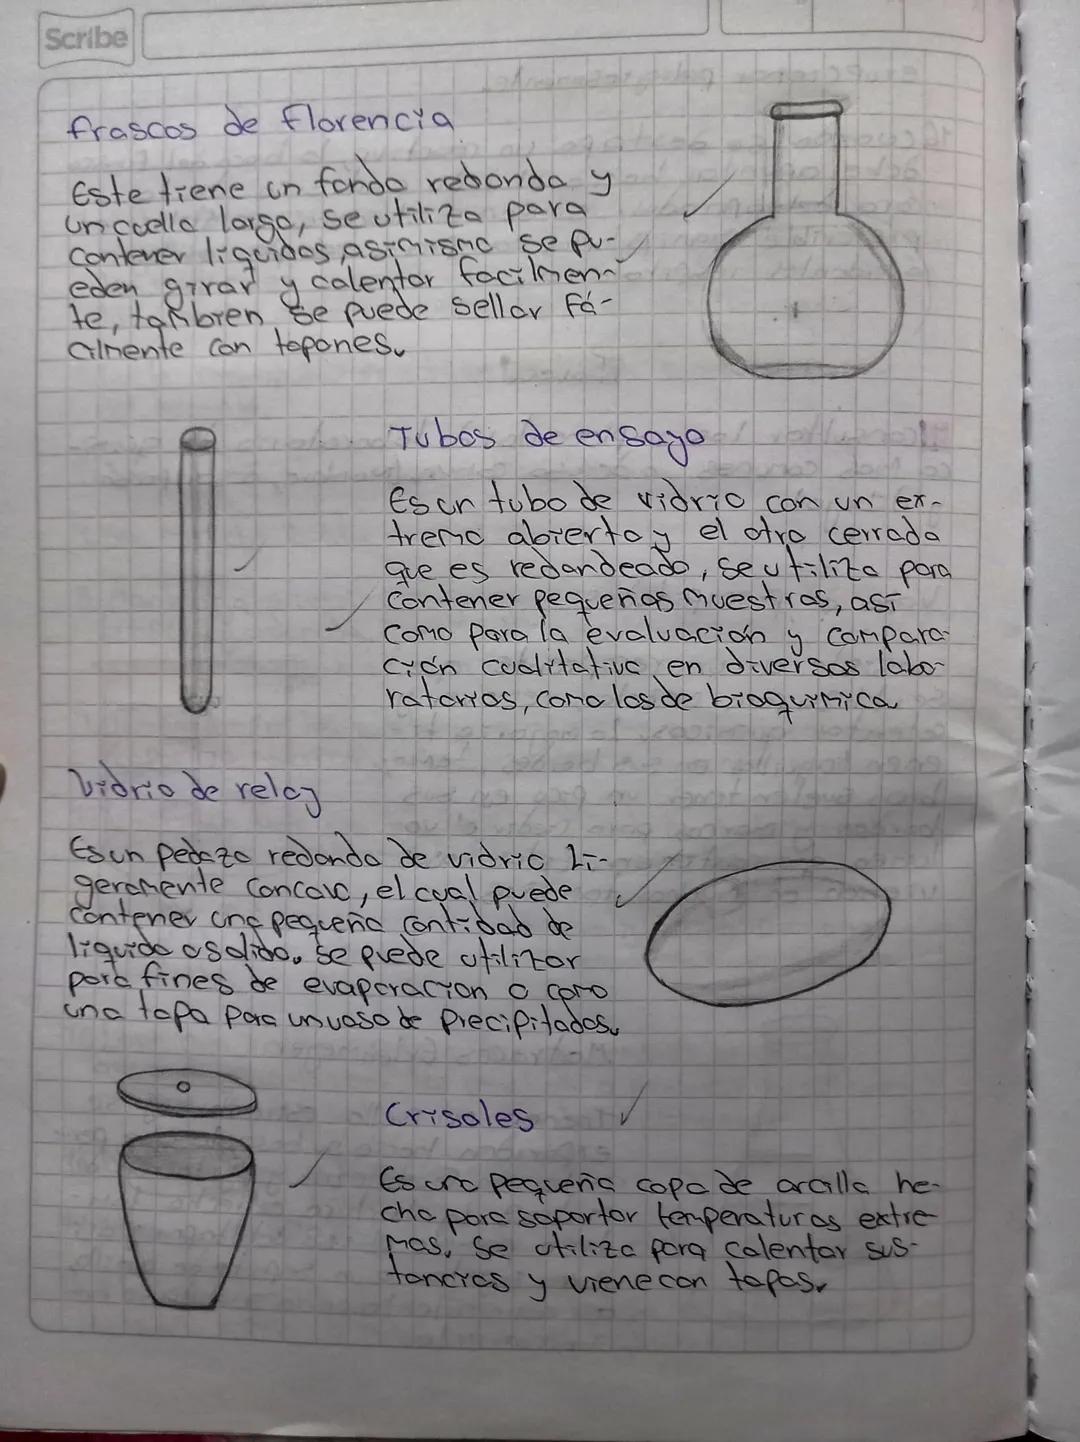 Scribe
frascos de florencia
Este tiene un fondo redondo y
un cuello largo, se utiliza para
contener líquidos, asimismo se pu-
eden girar y calentar facilmen-
te, también se puede sellar fá-
cilmente con tapones.
Tubos de ensayo
Es un tubo de vidrio con un ex-
tremo abierto y el otro cerrado
que es redondeado, se utiliza para
contener pequeñas muestras, así
como para la evaluación y compara-
ción cualitativa en diversos labo-
ratorios, como los de bioquímica
Vidrio de reloj
Es un pedazo redondo de vidrio li-
geramente concavo, el cual puede
contener una pequeña cantidad de
líquido o solido. Se puede utilizar
para fines de evaporacion o como
una tapa para un vaso de precipitados.
Crisoles
Es una pequeña copa de arcilla he-
cha para soportar temperaturas extre
mas. Se utiliza para calentar sus-
tancias y viene con tapas.